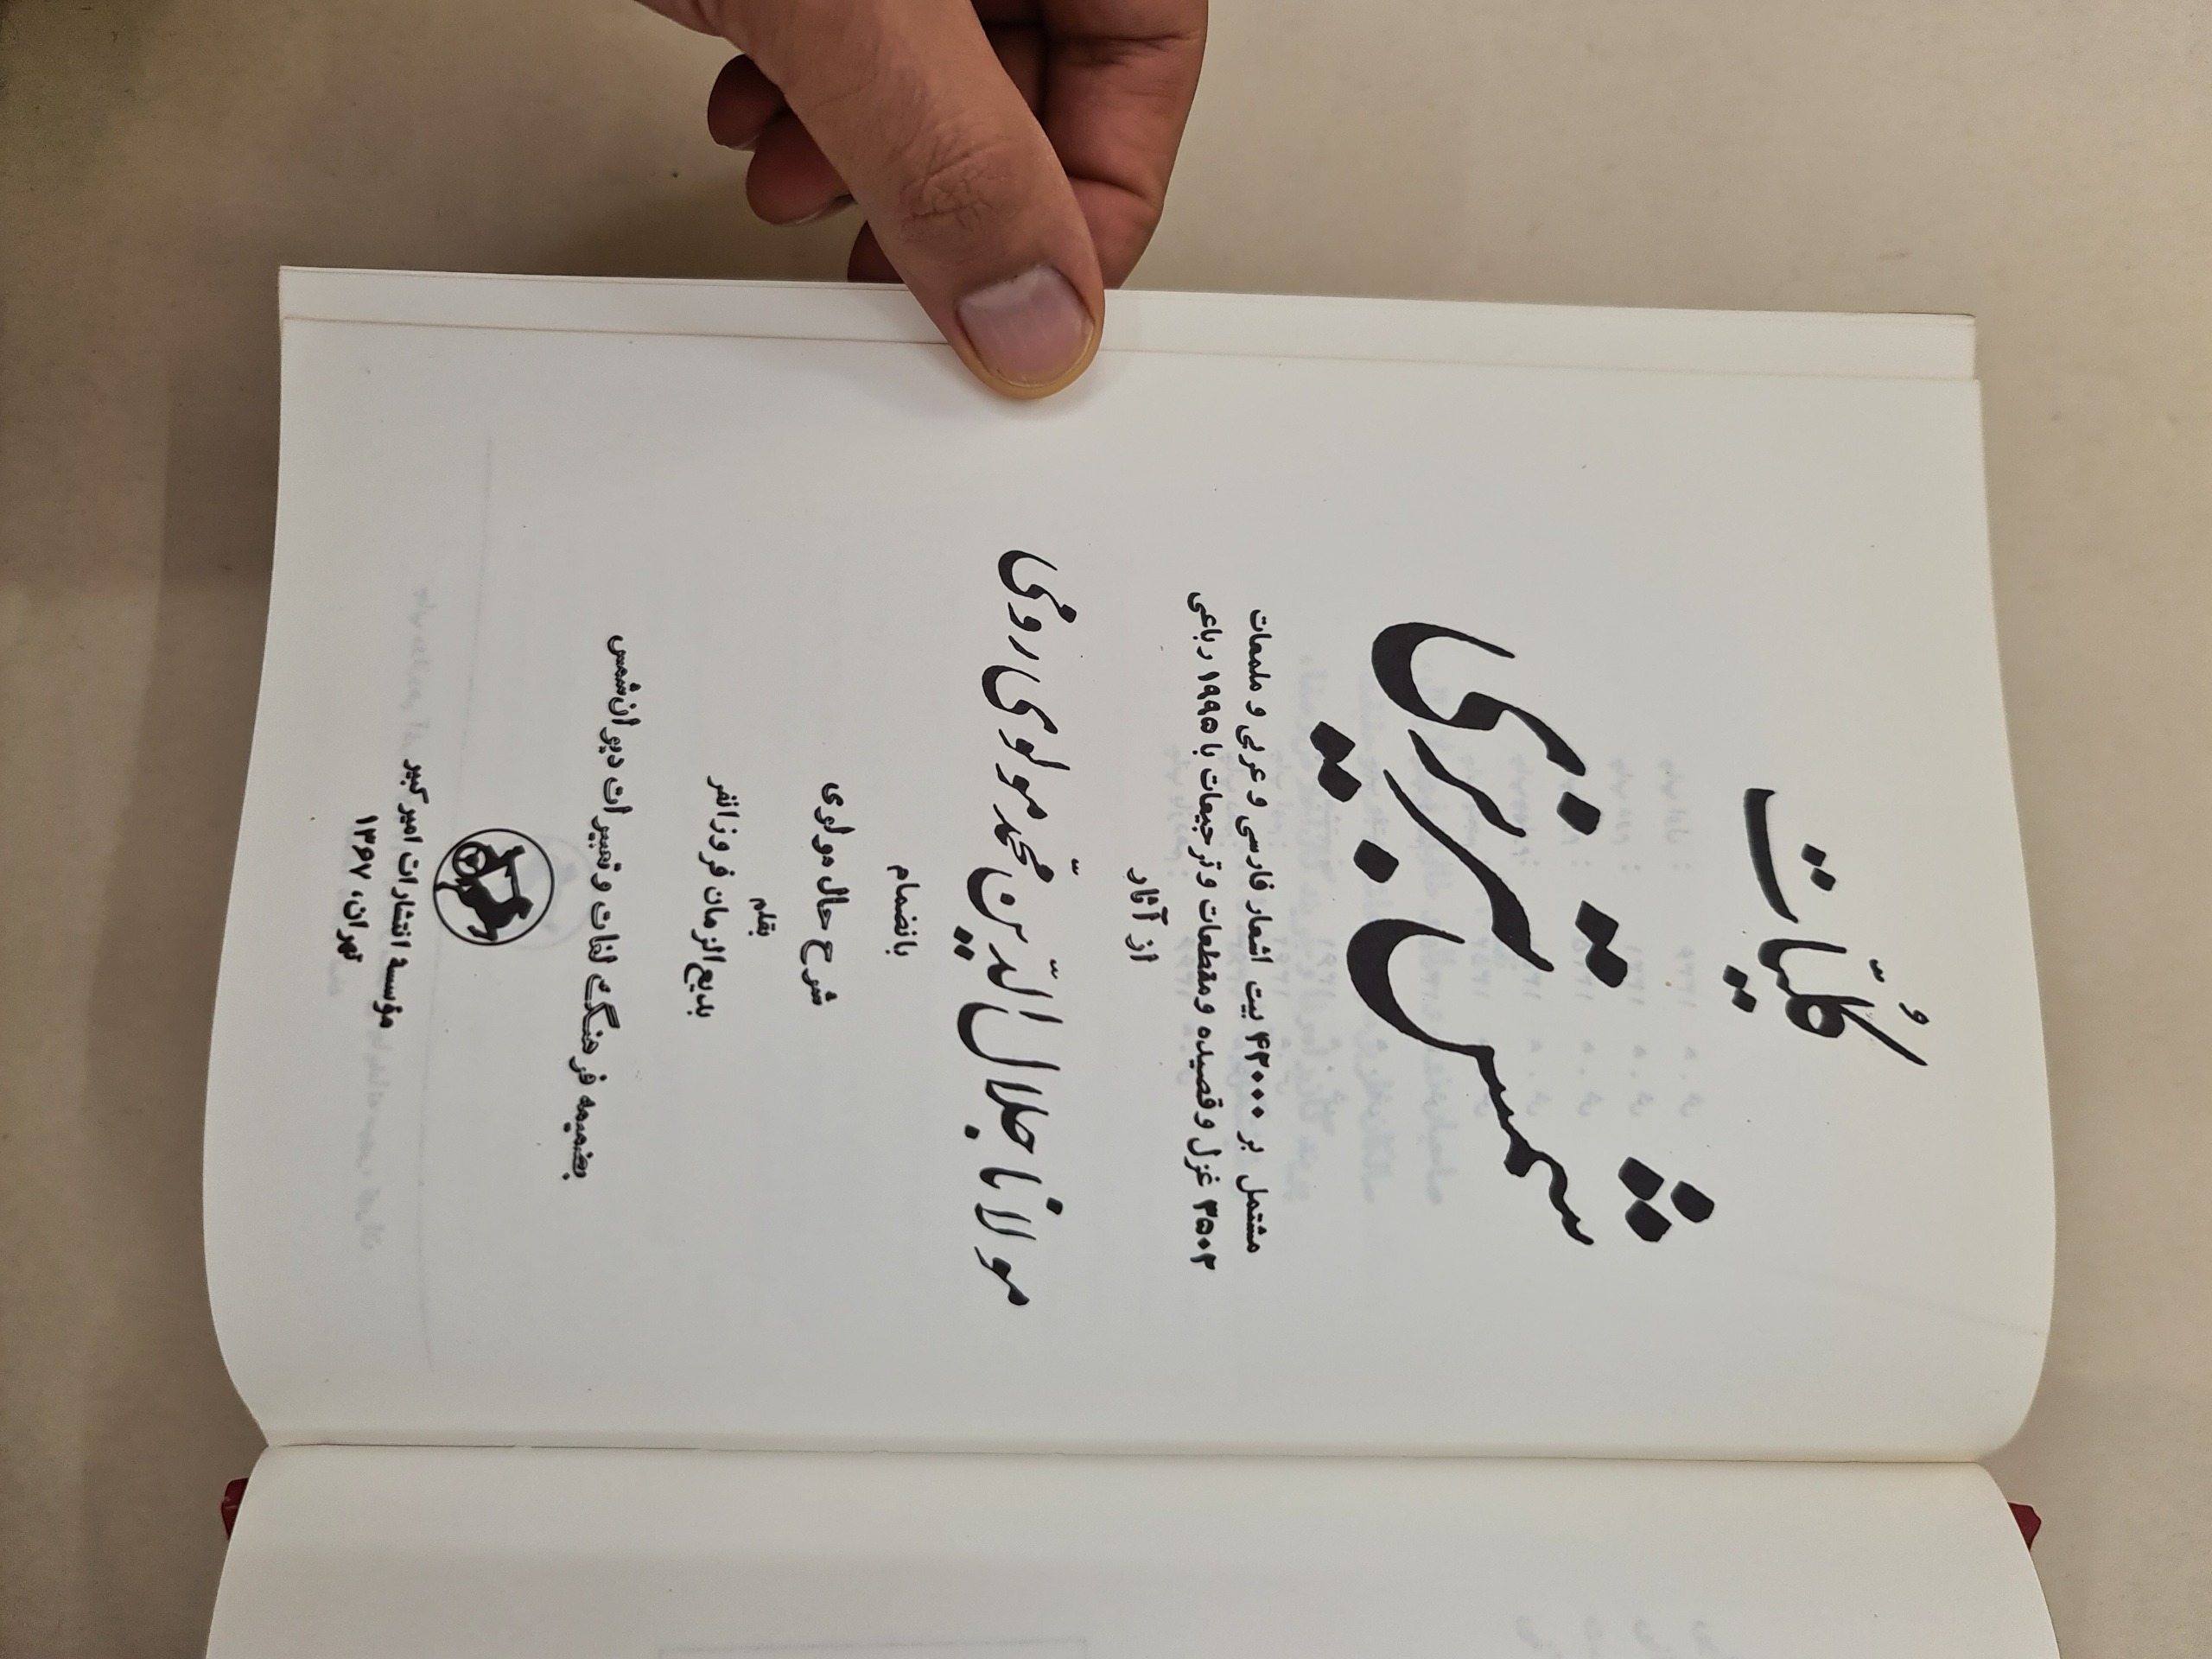 کُلیّات
شمس تبریزی
مشتمل بر ۴۲۰۰۰ بیت اشعار فارسی و عربی و ملمعات
۳۵۰۲ غزل و قصیده و مقطعات و ترجیعات با ۱۹۹۵ رباعی
از آثار
مولانا جلال الدّین محمّد مولوی رومی
بانضمام
شرح حال مولوی
بقلم
بدیع الزمان فروزانفر
بضمیمه فرهنگ لغات و تعبیرات دیوان شمس
مؤسسهٔ انتشارات امیر کبیر
تهران، ۱۳۶۷